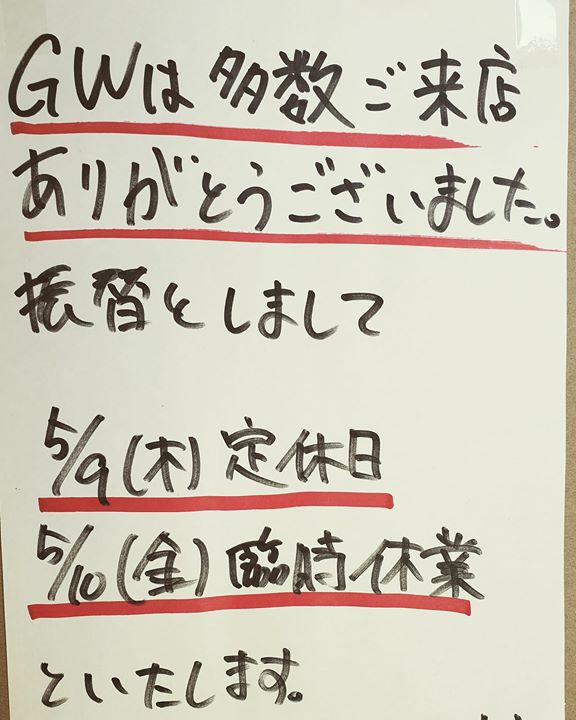 GWは多数ご来店
ありがとうございました。
振替としまして
5/9(木)定休日
5/10(金)臨時休業
といたします。